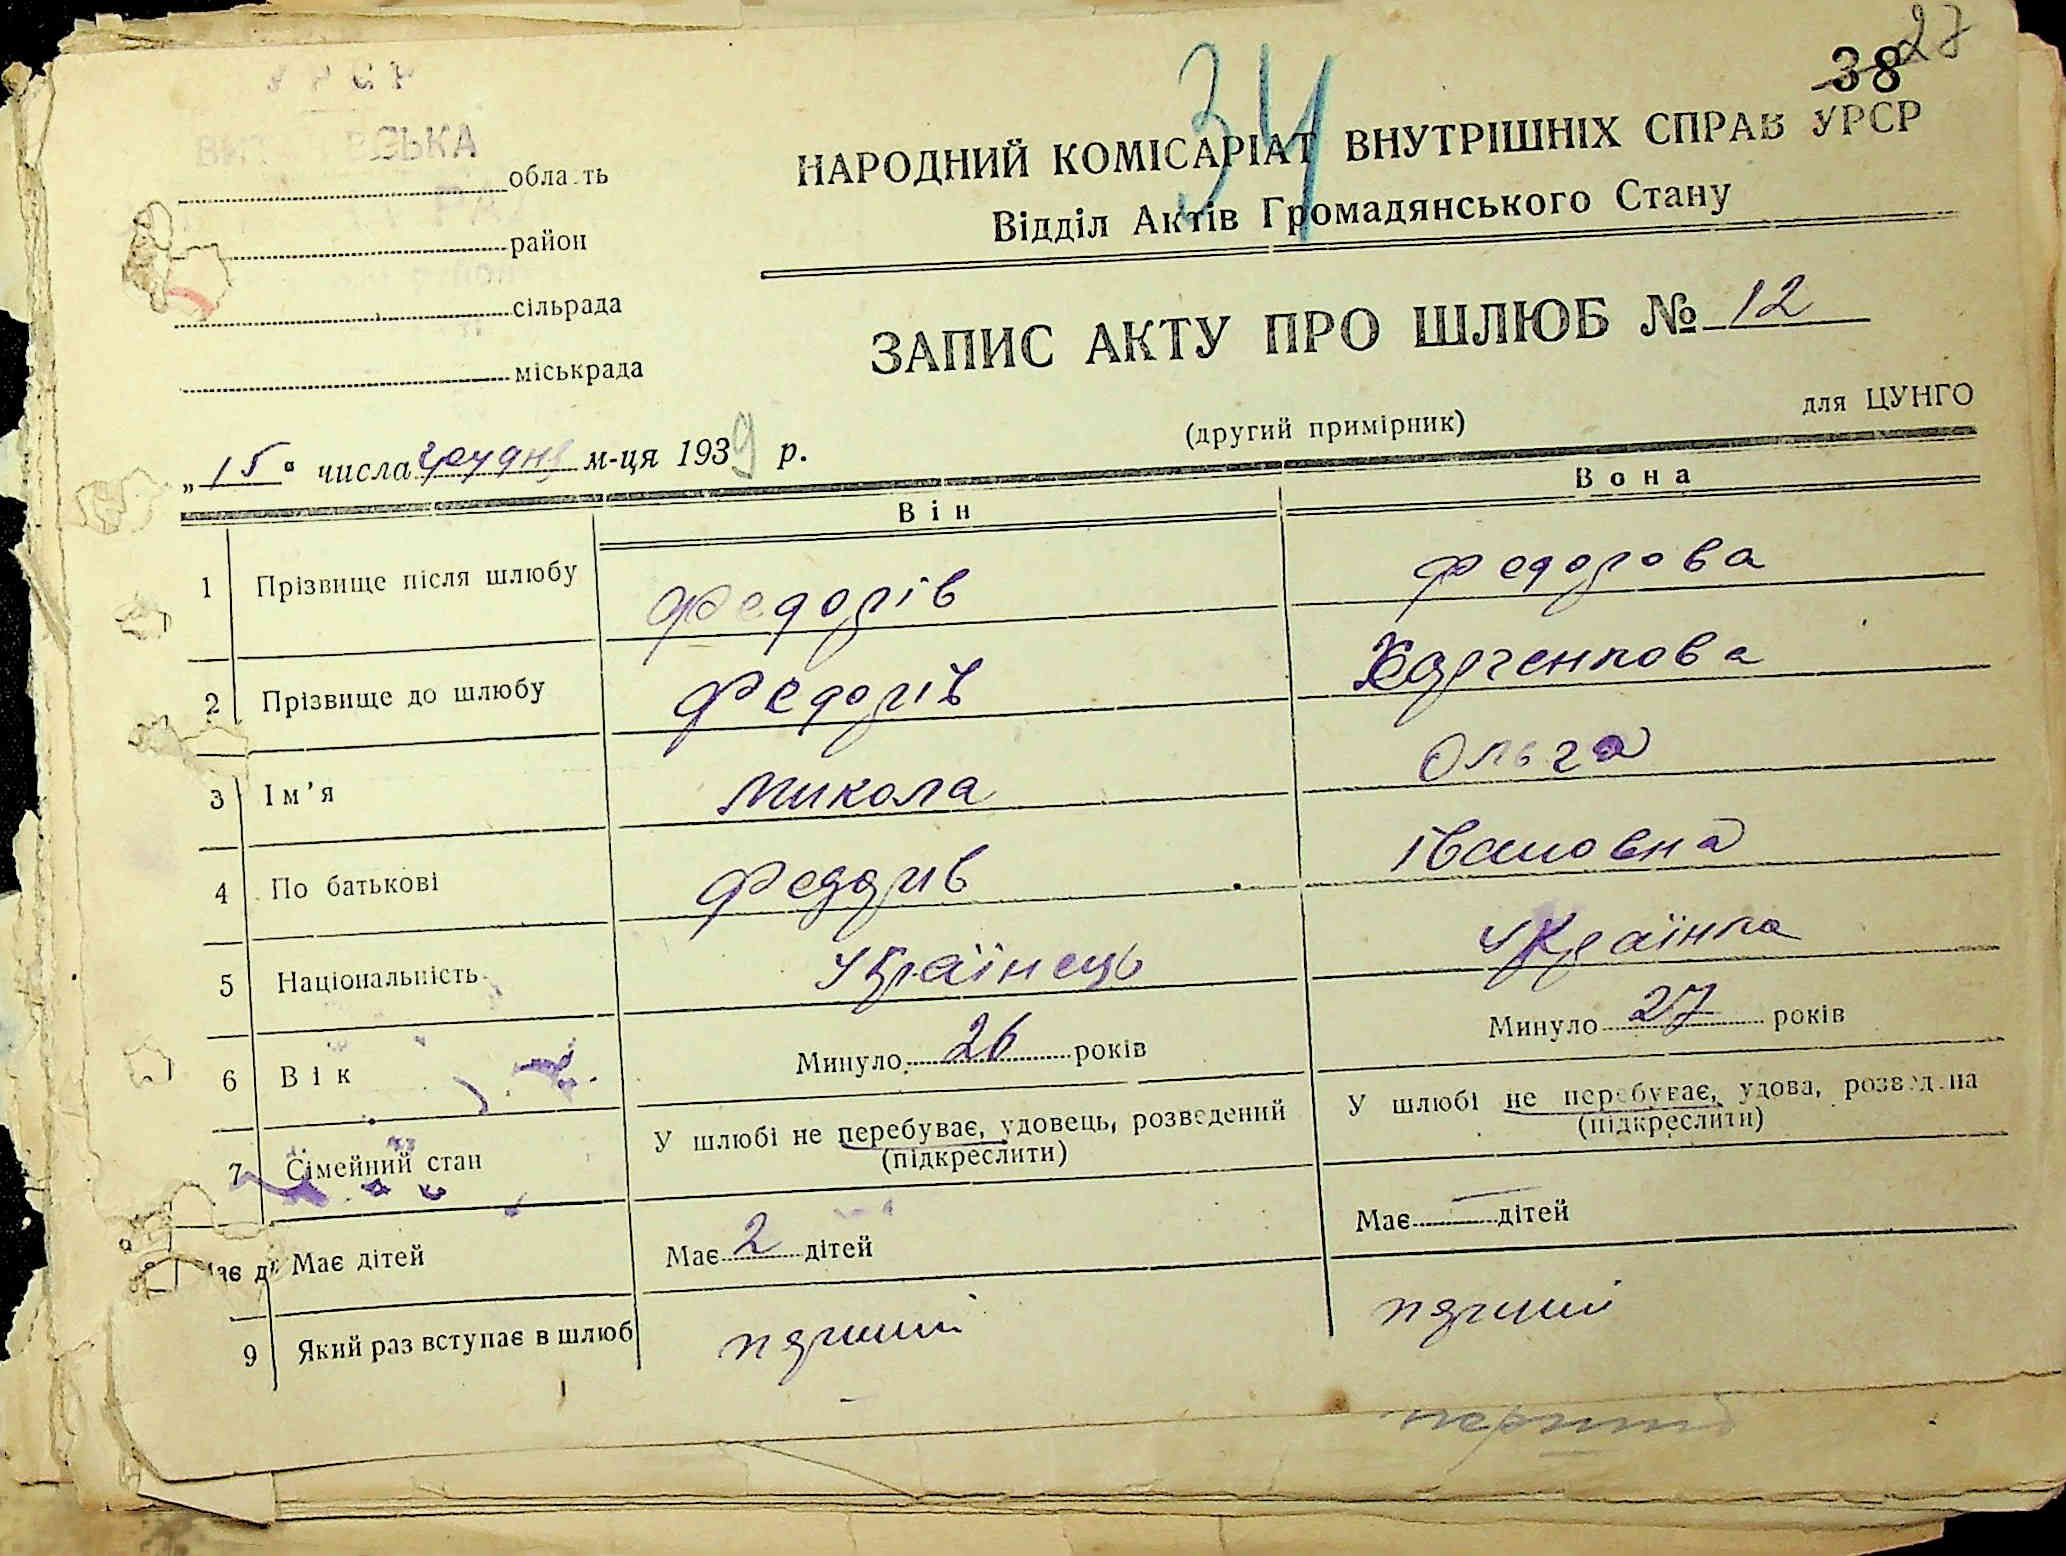 27
38
34
УРСР
область
район
сільрада
міськрада
НАРОДНИЙ КОМІСАРІАТ ВНУТРІШНІХ СПРАВ УРСР
Відділ Актів Громадянського Стану
ЗАПИС АКТУ ПРО ШЛЮБ № 12
(другий примірник) для ЦУНГО
„15" числа грудня м-ця 1939 р.
Він Вона
1 Прізвище після шлюбу Федорів Федорова
2 Прізвище до шлюбу Федорів Харченкова
3 Ім'я Микола Ольга
4 По батькові Федорив Івановна
5 Національність Українець Українка
6 Вік Минуло 26 років Минуло 27 років
7 Сімейний стан У шлюбі не перебуває, удовець, розведений У шлюбі не перебуває, удова, розведена
(підкреслити) (підкреслити)
Має дітей Має 2 дітей Має — дітей
9 Який раз вступає в шлюб перший перший